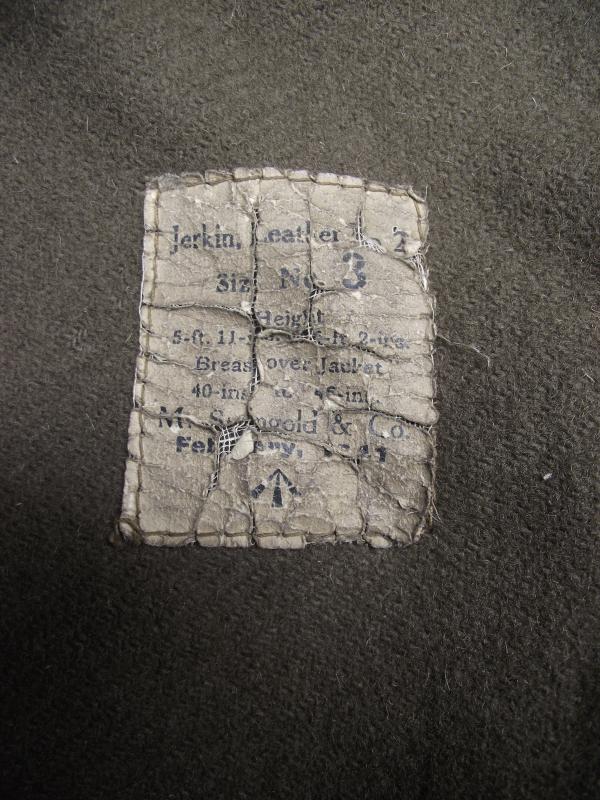 Jerkin, Leather No 2
Size No 3
Height
5-ft. 11-ins. 2-ins.
Breast over Jacket
40-ins to 46-ins.
M. & Co.
February, 1941